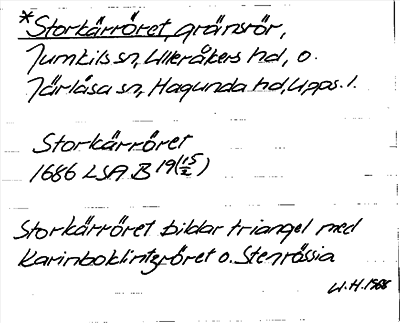 *Storkärröret, gränsrör,
Jumkils sn, Ulleråkers hd, o.
Järlåsa sn, Hagunda hd, Upps. l.
Storkärröret
1686 LSA B 19(15/2)
Storkärröret bildar triangel med
Karinboklintzröret o. Stenrössia
W.H. 1988